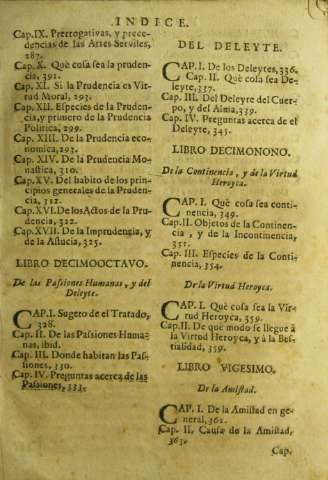 .INDICE.
Cap.IX. Prerrogativas, y prece-
dencias de las Artes Serviles,
287.
Cap.X. Què cosa sea la pruden-
cia, 291.
Cap.XI. Si la Prudencia es Vir-
tud Moral, 293.
Cap.XII. Especies de la Pruden-
cia, y primero de la Prudencia
Politica, 299.
Cap.XIII. De la Prudencia eco-
nomica, 293.
Cap.XIV. De la Prudencia Mo-
nastica, 310.
Cap.XV. Del habito de los prin-
cipios generales de la Pruden-
cia, 312.
Cap.XVI. De los Actos de la Pru-
dencia, 322.
Cap.XVII. De la Imprudencia, y
de la Astucia, 325.
LIBRO DECIMOOCTAVO.
De las Passiones Humanas, y del
Deleyte.
CAP.I. Sugeto de el Tratado,
328.
Cap.II. De las Passiones Huma-
nas, ibid.
Cap.III. Donde habitan las Pas-
siones, 330.
Cap.IV. Preguntas acerca de las
Passiones, 333.
DEL DELEYTE.
CAP.I. De los Deleytes, 336.
Cap.II. Què cosa sea De-
leyte, 337.
Cap.III. Del Deleyte del Cuer-
po, y del Alma, 339.
Cap.IV. Preguntas acerca de el
Deleyte, 345.
LIBRO DECIMONONO.
De la Continencia, y de la Virtud
Heroyca.
CAP.I. Què cosa sea conti-
nencia, 349.
Cap.II. Objetos de la Continen-
cia, y de la Incontinencia,
351.
Cap.III. Especies de la Conti-
nencia, 354.
De la Virtud Heroyca.
CAP.I. Què cosa sea la Vir-
tud Heroyca, 359.
Cap.II. De que modo se llegue à
la Virtud Heroyca, y à la Bes-
tialidad, 359.
LIBRO VIGESIMO.
De la Amistad.
CAP.I. De la Amistad en ge-
neral, 361.
Cap.II. Causas de la Amistad,
363.
Cap.